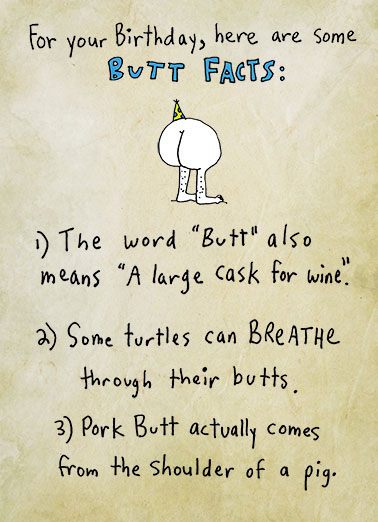 For your Birthday, here are some
BUTT FACTS:
1) The word "Butt" also
means "A large cask for wine".
2) Some turtles can BREATHE
through their butts.
3) Pork Butt actually comes
from the shoulder of a pig.